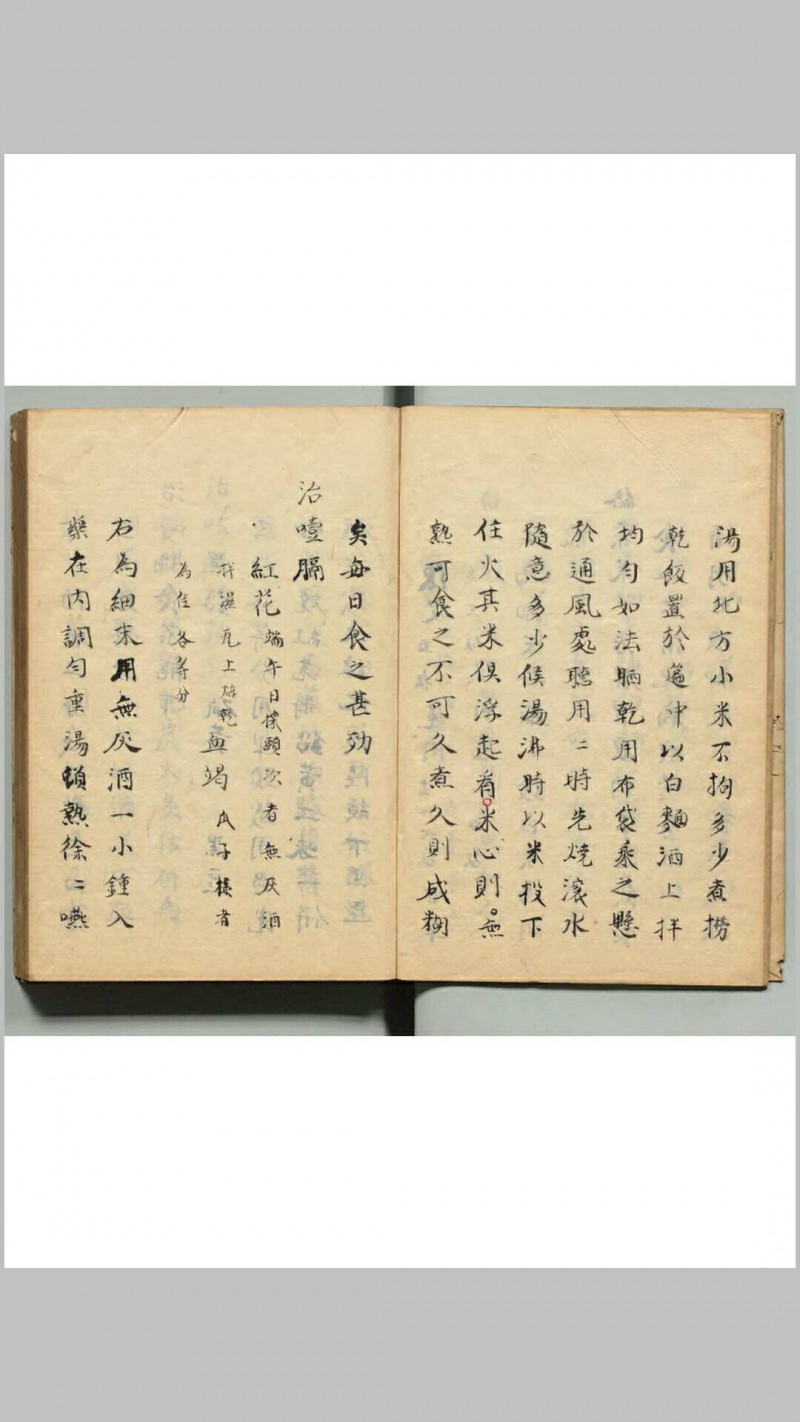 湯用北方小米不拘多少煮撈
乾飯置於箥中以白麵洒上拌
均勻如法晒乾用布袋乘之懸
於通風處聽用〻時先燒滾水
隨意多少候湯沸時以米投下
住火其米俱浮起看米心則無
熟可食之不可久煮久則成糊
矣每日食之甚効
治噎膈
紅花端午日採頭次者無灰酒
拌濕瓦上焙乾血竭瓜子樣者
為佳各等分
右為細末用無灰酒一小鍾入
藥在內調勻重湯頓熱徐〻嚥